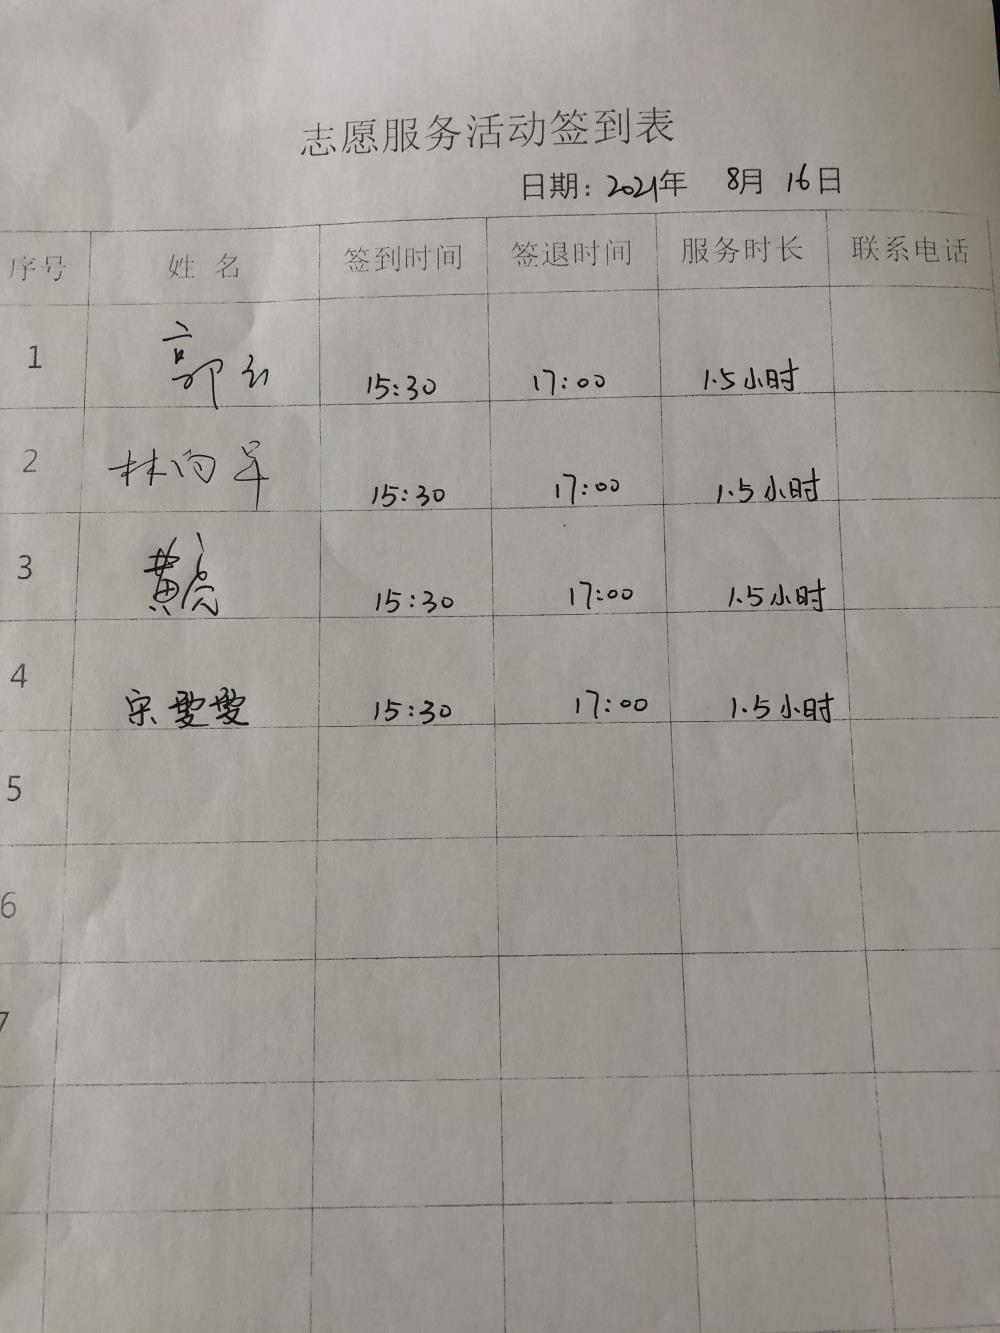 志愿服务活动签到表
日期：2021年 8月 16日
序号 姓名 签到时间 签退时间 服务时长 联系电话
1 郭 15:30 17:00 1.5小时
2 林向早 15:30 17:00 1.5小时
3 黄亮 15:30 17:00 1.5小时
4 宋雯雯 15:30 17:00 1.5小时
5
6
7